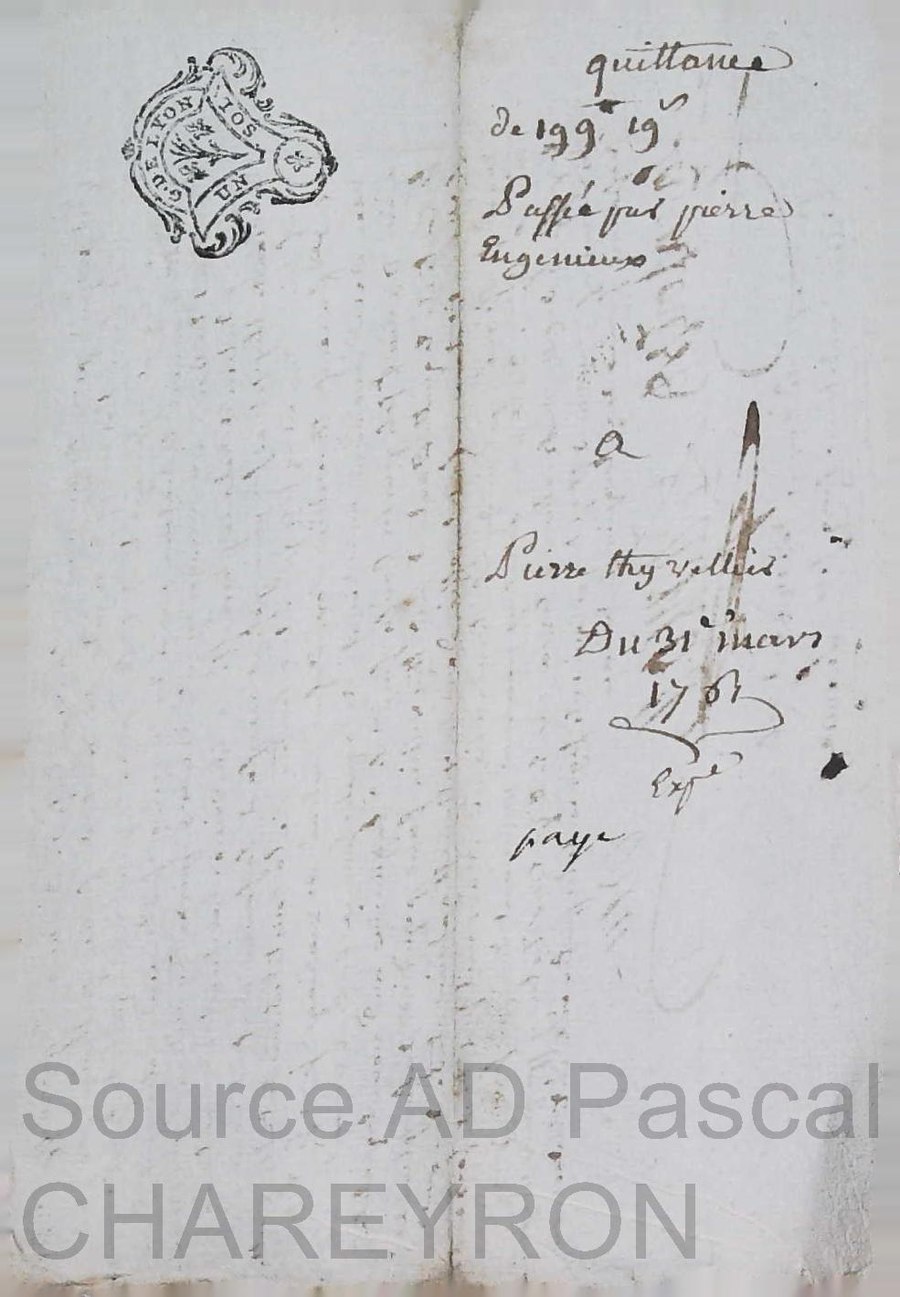 G. DE LYON
UN SOL
quittance
de 199# 19s
Passée par pierre
Engenieux
A
Pierre thyvelliers
Du 31e mars
1761
Expe
paye
Source AD Pascal
CHAREYRON